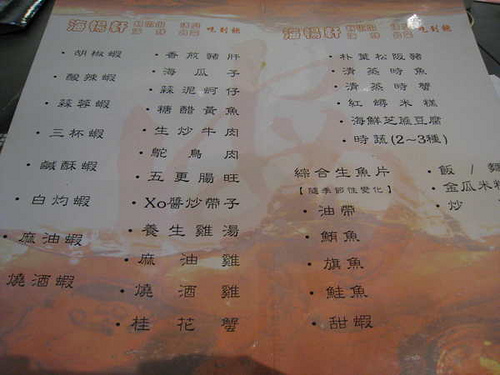 海揚軒 吃到飽
胡椒蝦
酸辣蝦
蒜蓉蝦
三杯蝦
鹹酥蝦
白灼蝦
麻油蝦
燒酒蝦
香煎豬肝
海瓜子
蒜泥蚵仔
糖醋黃魚
生炒牛肉
鴕鳥肉
五更腸旺
Xo醬炒帶子
養生雞湯
麻油雞
燒酒雞
桂花蟹
海揚軒 吃到飽
朴葉松阪豬
清蒸時魚
清蒸時蟹
紅蟳米糕
海鮮芝麻豆腐
時蔬(2~3種)
綜合生魚片
【隨季節性變化】
油帶
鮪魚
旗魚
鮭魚
甜蝦
飯/麵
金瓜米粉
炒